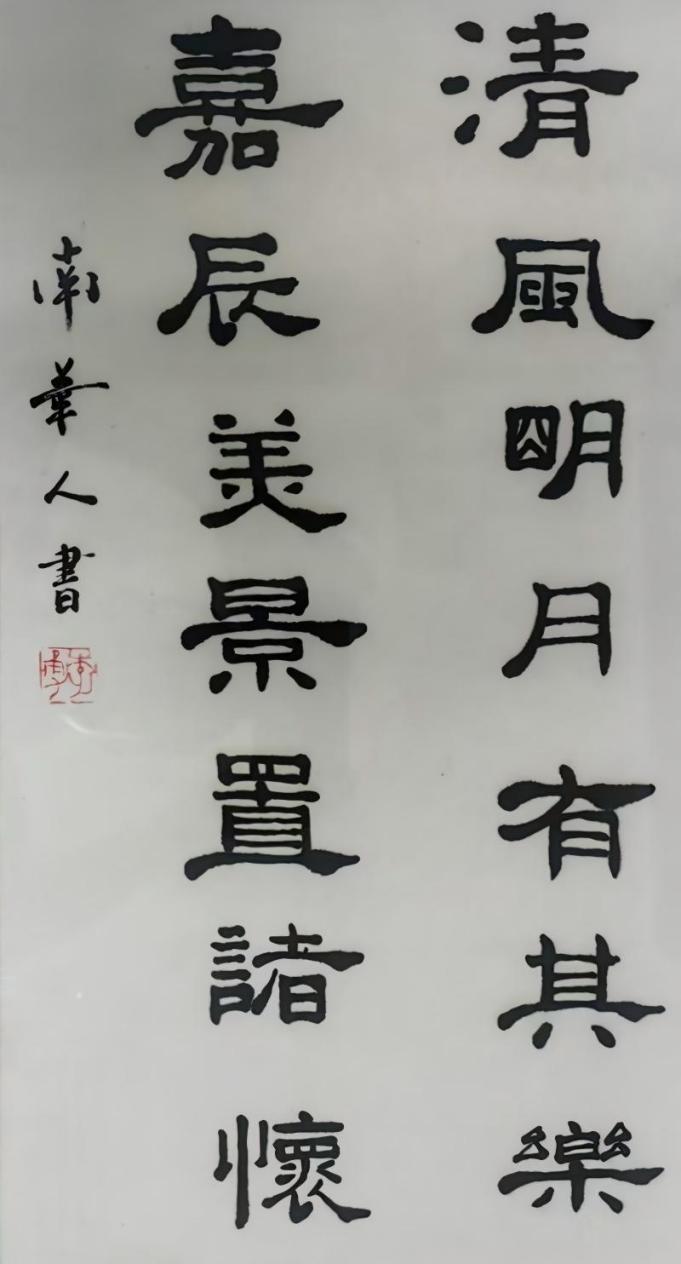 清風明月有其樂
嘉辰美景置諸懷
南華人書